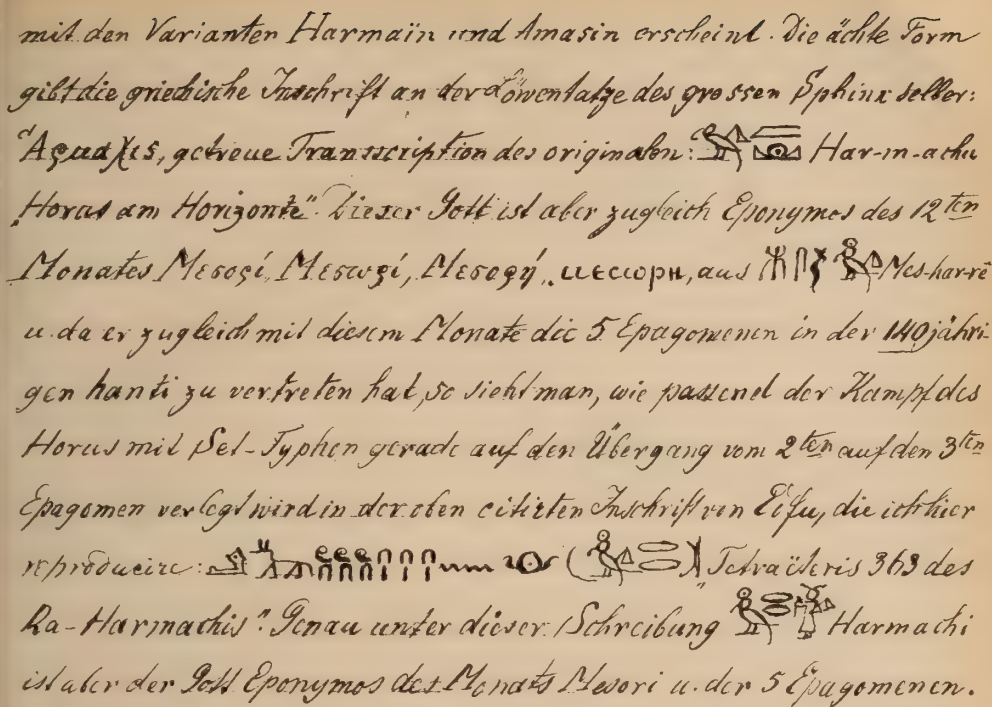 mit den Varianten Harmaïn und Amasin erscheint. Die ächte Form
gibt die griechische Inschrift an der Löwentatze des grossen Sphinx selber:
Ἁρμαχις, getreue Transscription des originalen: Har-m-achu
„Horus am Horizonte". Dieser Gott ist aber zugleich Eponymos des 12ten
Monates Μεσορί, Μεσωρί, Μεσορή, ⲙⲉⲥⲱⲣⲏ, aus Mes-har-rê
u. da er zugleich mit diesem Monate die 5 Epagomenen in der 140jähri-
gen hanti zu vertreten hat, so sieht man, wie passend der Kampf des
Horus mit Set-Typhon gerade auf den Übergang vom 2ten auf den 3ten
Epagomen verlegt wird in der oben citirten Inschrift von Edfu, die ich hier
reproducire: „Tetraëteris 363 des
Ra-Harmachis". Genau unter dieser Schreibung Harmachi
ist aber der Gott Eponymos des Monats Mesori u. der 5 Epagomenen.